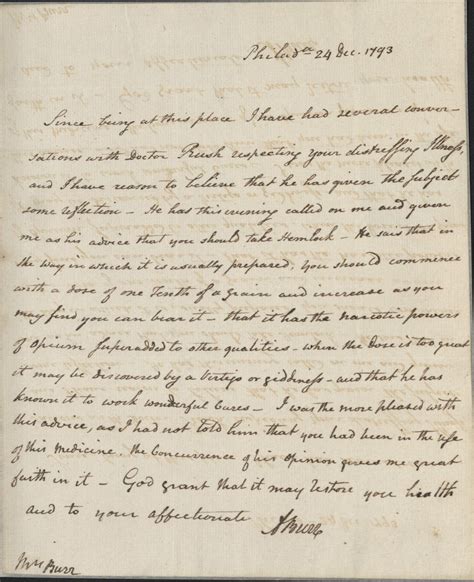 Philad.a 24 Dec. 1793
Since being at this place I have had several conver-
sations with Doctor Rush respecting your distressing Illness,
and I have reason to believe that he has given the subject
some reflection — He has this evening called on me and given
me as his advice that you should take Hemlock — He sais that in
the way in which it is usually prepared, you should commence
with a dose of one Tenth of a grain and increase as you
may find you can bear it — that it has the narcotic powers
of Opium superadded to other qualities — when the Dose is too great
it may be discovered by a Vertigo or giddness — and that he has
known it to work wonderful Cures — I was the more pleased with
this advice, as I had not told him that you had been in the use
of this Medicine, the Concurrence of his Opinion gives me great
faith in it — God grant that it may restore you health
and to your affectionate
ABurr
Mrs Burr